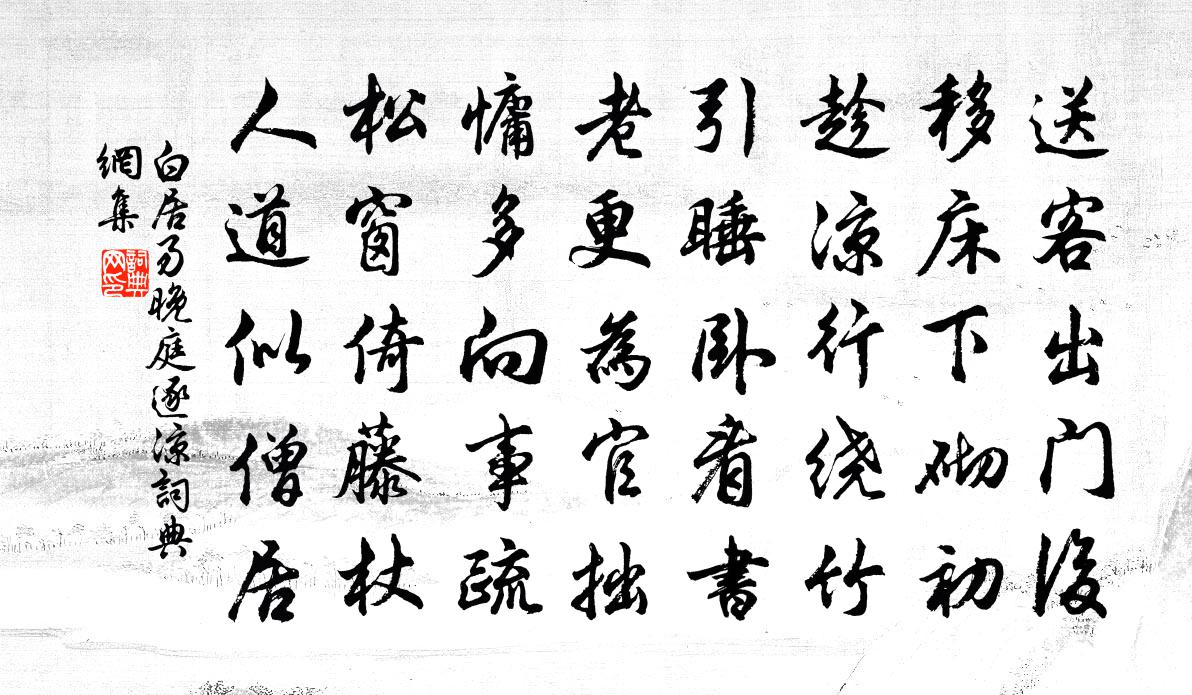 送客出门後
移床下砌初
趁凉行绕竹
引睡卧看書
老更為官拙
慵多向事疏
松窗倚藤杖
人道似僧居
白居易晚庭逐凉詞典
網集
詞典
网印